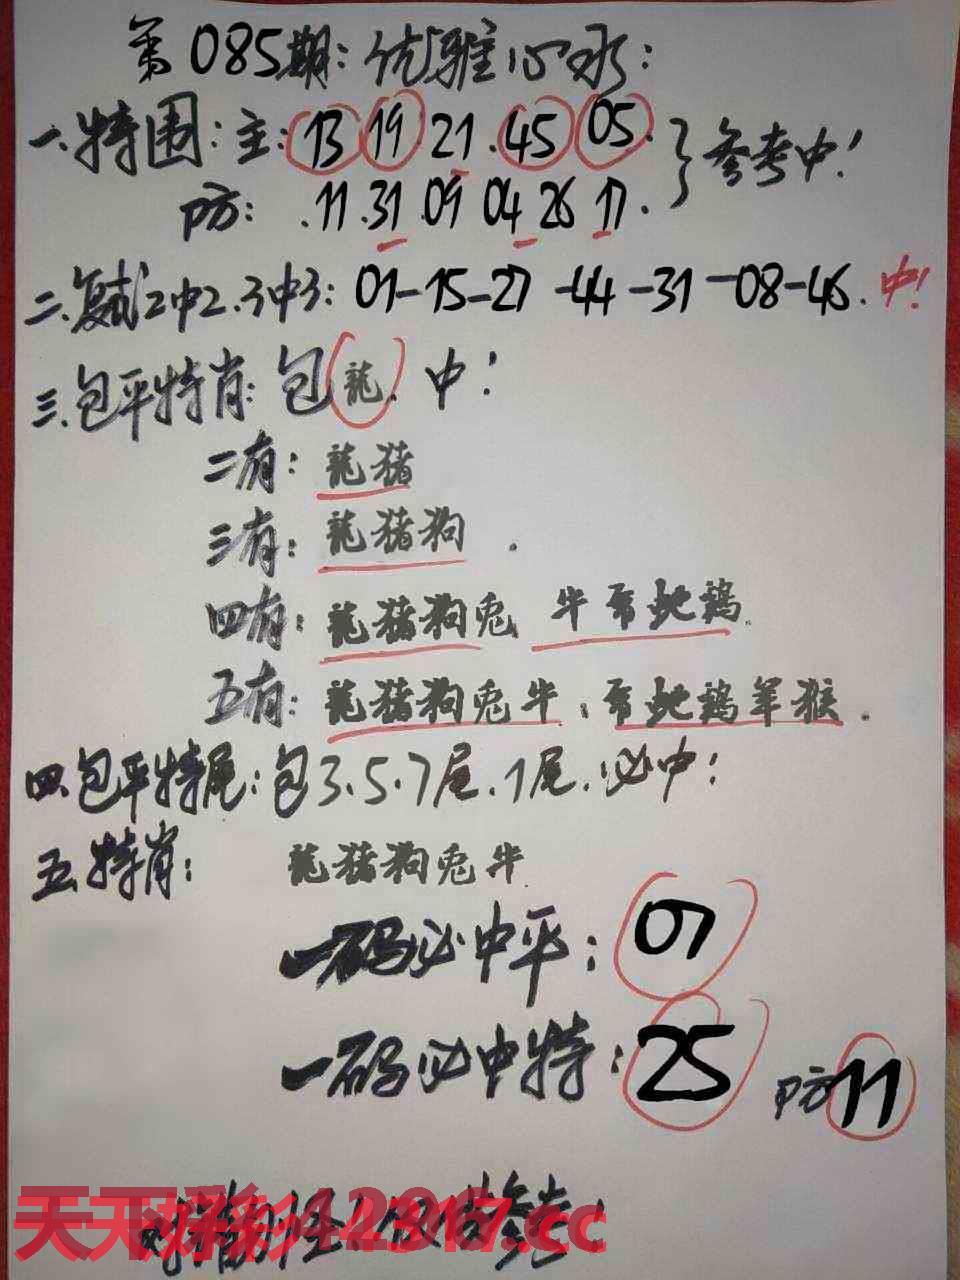 第085期：优雅心水：
一.特围：主：13 19 21.45 05.
}参考中！
防：.11.31.09 04 26 17.
二.复试2中2.3中3：01-15-27-44-31-08-46.中！
三.包平特肖：包龍.中！
二有：龍猪
三有：龍猪狗.
四有：龍猪狗兎 牛 蛇鷄.
五有：龍猪狗兎牛： 蛇鷄羊猴.
四.包平特尾：包3.5.7尾.1尾.必中！
五.特肖：龍猪狗兎牛
一码必中平：07
一码必中特：25 防11
天下彩 .cc
参考！